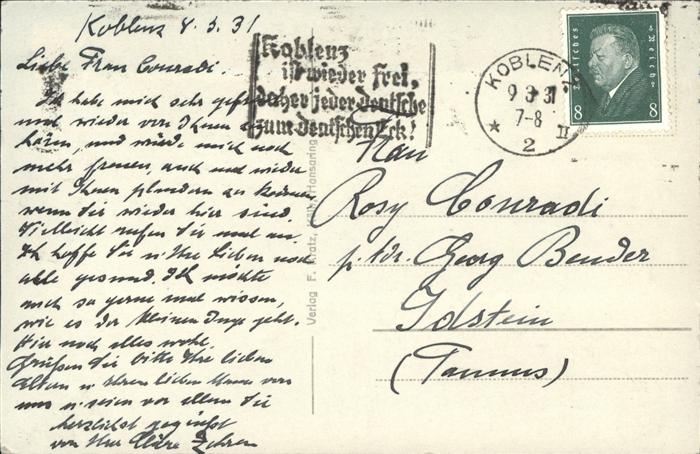 Koblenz 8.3.31
Liebe Frau Conradi.
Ich habe mich sehr gefreut
mal wieder von Ihnen zu
hören, und würde mich noch
mehr freuen, auch mal wieder
mit Ihnen plaudern zu können
wenn Sie wieder hier sind.
Vielleicht rufen Sie mal an
Ich hoffe Sie u Ihre Lieben noch
alle gesund. Ich möchte
auch so gerne mal wissen,
wie es der kleinen Inge geht.
Hier noch alles wohl.
Grüßen Sie bitte Ihre lieben
Eltern u Ihren lieben Mann von
uns u seien vor allem Sie
herzlichst gegrüßt
von Ihrer
Koblenz
ist wieder frei,
daher jeder Deutsche
zum Deutschen Eck!
KOBLENZ
9 3 31
7-8
* 2 II
Deutsches Reich
8 8
Frau
Rosy Conradi
p. Adr. Georg Bender
Idstein
(Taunus)
Verlag F. Kratz, Hansaring